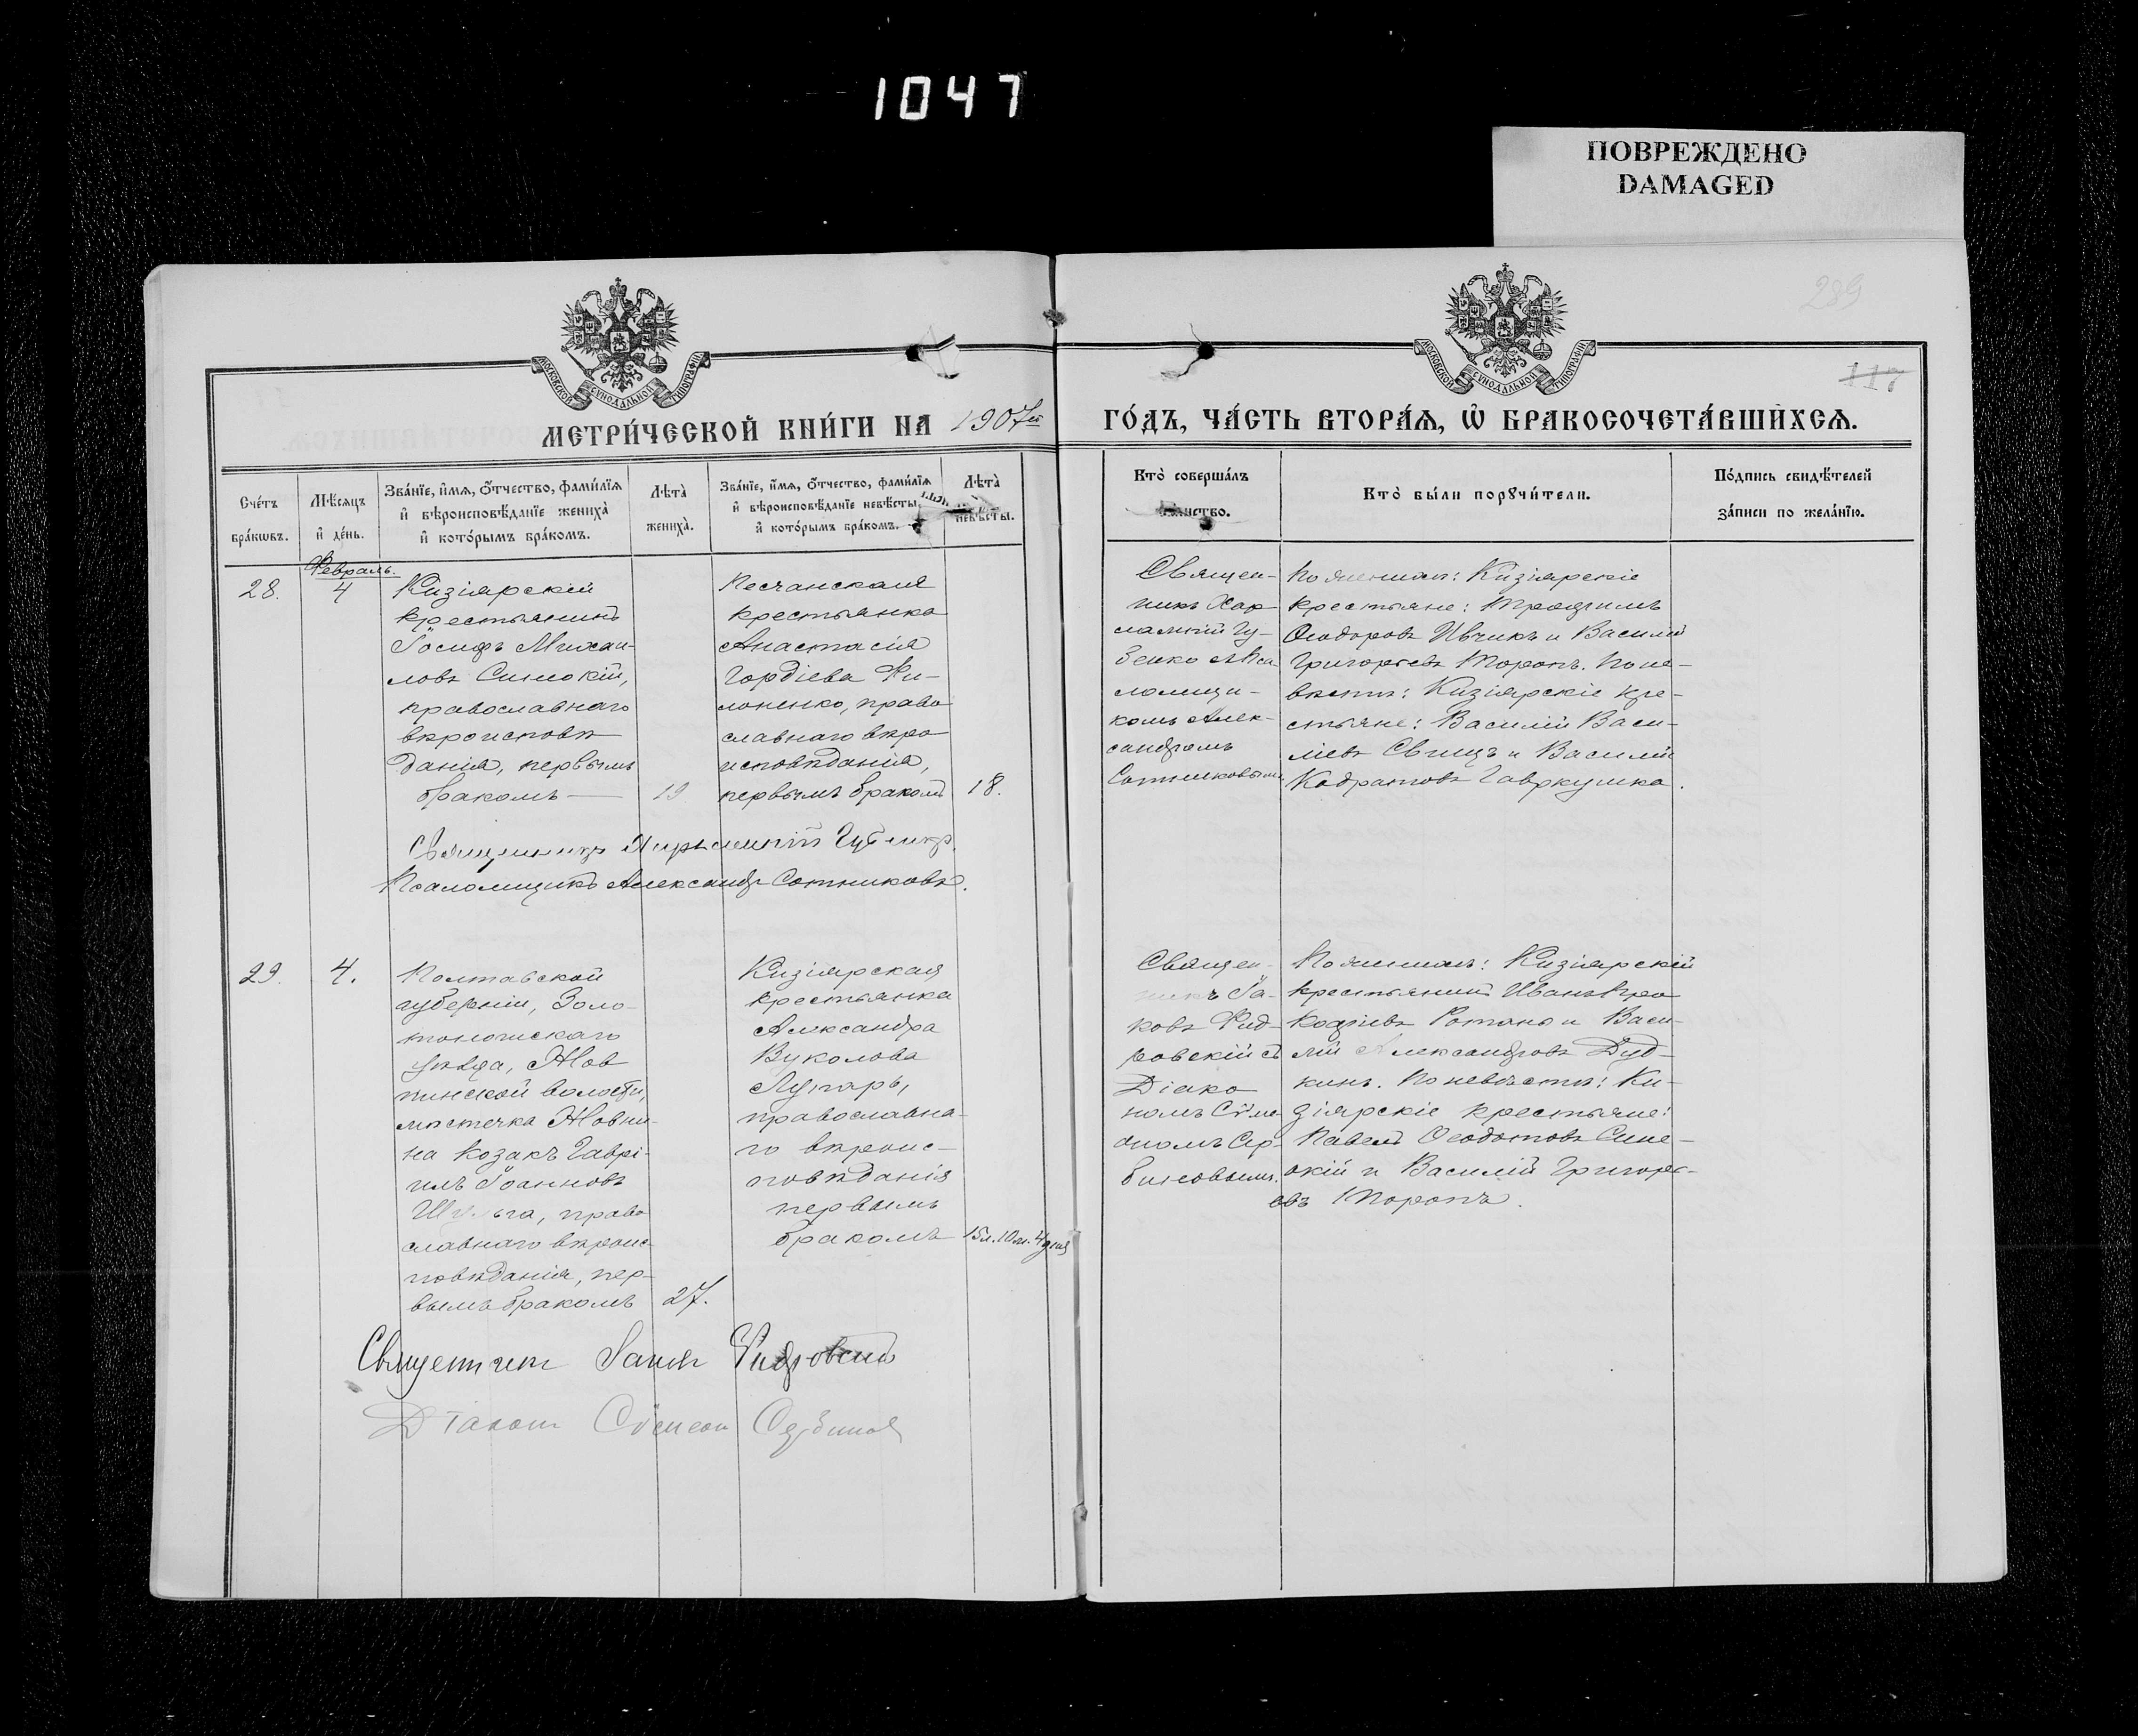 1047
ПОВРЕЖДЕНО
DAMAGED
239
117
МОСКОВСКОЙ СѴНОДАЛЬНОЙ ТИПОГРАФІИ
МОСКОВСКОЙ СѴНОДАЛЬНОЙ ТИПОГРАФІИ
МЕТРИ́ЧЕСКОЙ КНИ́ГИ НА 1907й
ГО́ДЪ, ЧА́СТЬ ВТОРА́Я, Ѡ҆ БРАКОСОЧЕТА́ВШИХСЯ.
Сче́тъ
бра́кѡвъ.
Мѣ́сяцъ
и҆ де́нь.
Зва́нїе, и҆́мя, ѻ҆́тчество, фами́лїя
и҆ вѣроисповѣ́данїе жениха̀
и҆ кото́рымъ бра́комъ.
Лѣта̀
жениха̀.
Зва́нїе, и҆́мя, ѻ҆́тчество, фами́лїя
и҆ вѣроисповѣ́данїе невѣ́сты,
и҆ кото́рымъ бра́комъ.
Лѣта̀
невѣ́сты.
Кто̀ соверша́лъ
Кто̀ бы́ли порꙋчи́тели.
По́дпись свидѣ́телей
за́писи по жела́нїю.
Февраль.
28.
4
Кизіярскій
крестьянинъ
Іосифъ Михаи-
ловъ Синокій,
православнаго
вѣроисповѣ
данія, первымъ
бракомъ —
19
Песчанская
крестьянка
Анастасія
Гордіева Фи-
лоненко, право
славнаго вѣро
исповѣданія,
первымъ бракомъ
18.
Священ-
никъ Хар-
лампій Гу-
зенко съ Пса
ломщи-
комъ Алек-
сандромъ
Сотниковымъ
По женихѣ: Кизіярскіе
крестьяне: Трофимъ
Ѳеодоровъ Ивчикъ и Василій
Григорьевъ Торопъ. По не-
вѣстѣ: Кизіярскіе кре-
стьяне: Василій Васи-
ліевъ Свищъ и Василій
Кодратовъ Гавркушка.
Священникъ Харлампій
Псаломщикъ Александръ Сотниковъ.
29.
4.
Полтавской
губерніи, Золо-
тоношскаго
уѣзда, Жов
нинской волости,
мѣстечка Жовни-
на козакъ Гаврі-
илъ Іоанновъ
Шульга, право
славнаго вѣроис-
повѣданія, пер-
вымъ бракомъ
27.
Кизіярская
крестьянка
Александра
Вуколова
Лупарь,
православна-
го вѣроис-
повѣданія
первымъ
бракомъ
15 л. 10 м. 4 дня
Священ-
никъ Іа-
ковъ Фид-
ровскій съ
Діако
номъ Сѵме
ономъ Сер-
биновымъ.
По женихѣ: Кизіярскій
крестьянинъ Иванъ Про
кофіевъ Романо и Васи-
лій Александровъ Дуд-
кинъ. По невѣстѣ: Ки-
зіярскіе крестьяне:
Павелъ Ѳеодотовъ Сине-
окій и Василій Григорь-
евъ Торопъ.
Священникъ Іаковъ Фидровскій
Діаконъ Сѵмеонъ Сербиновъ